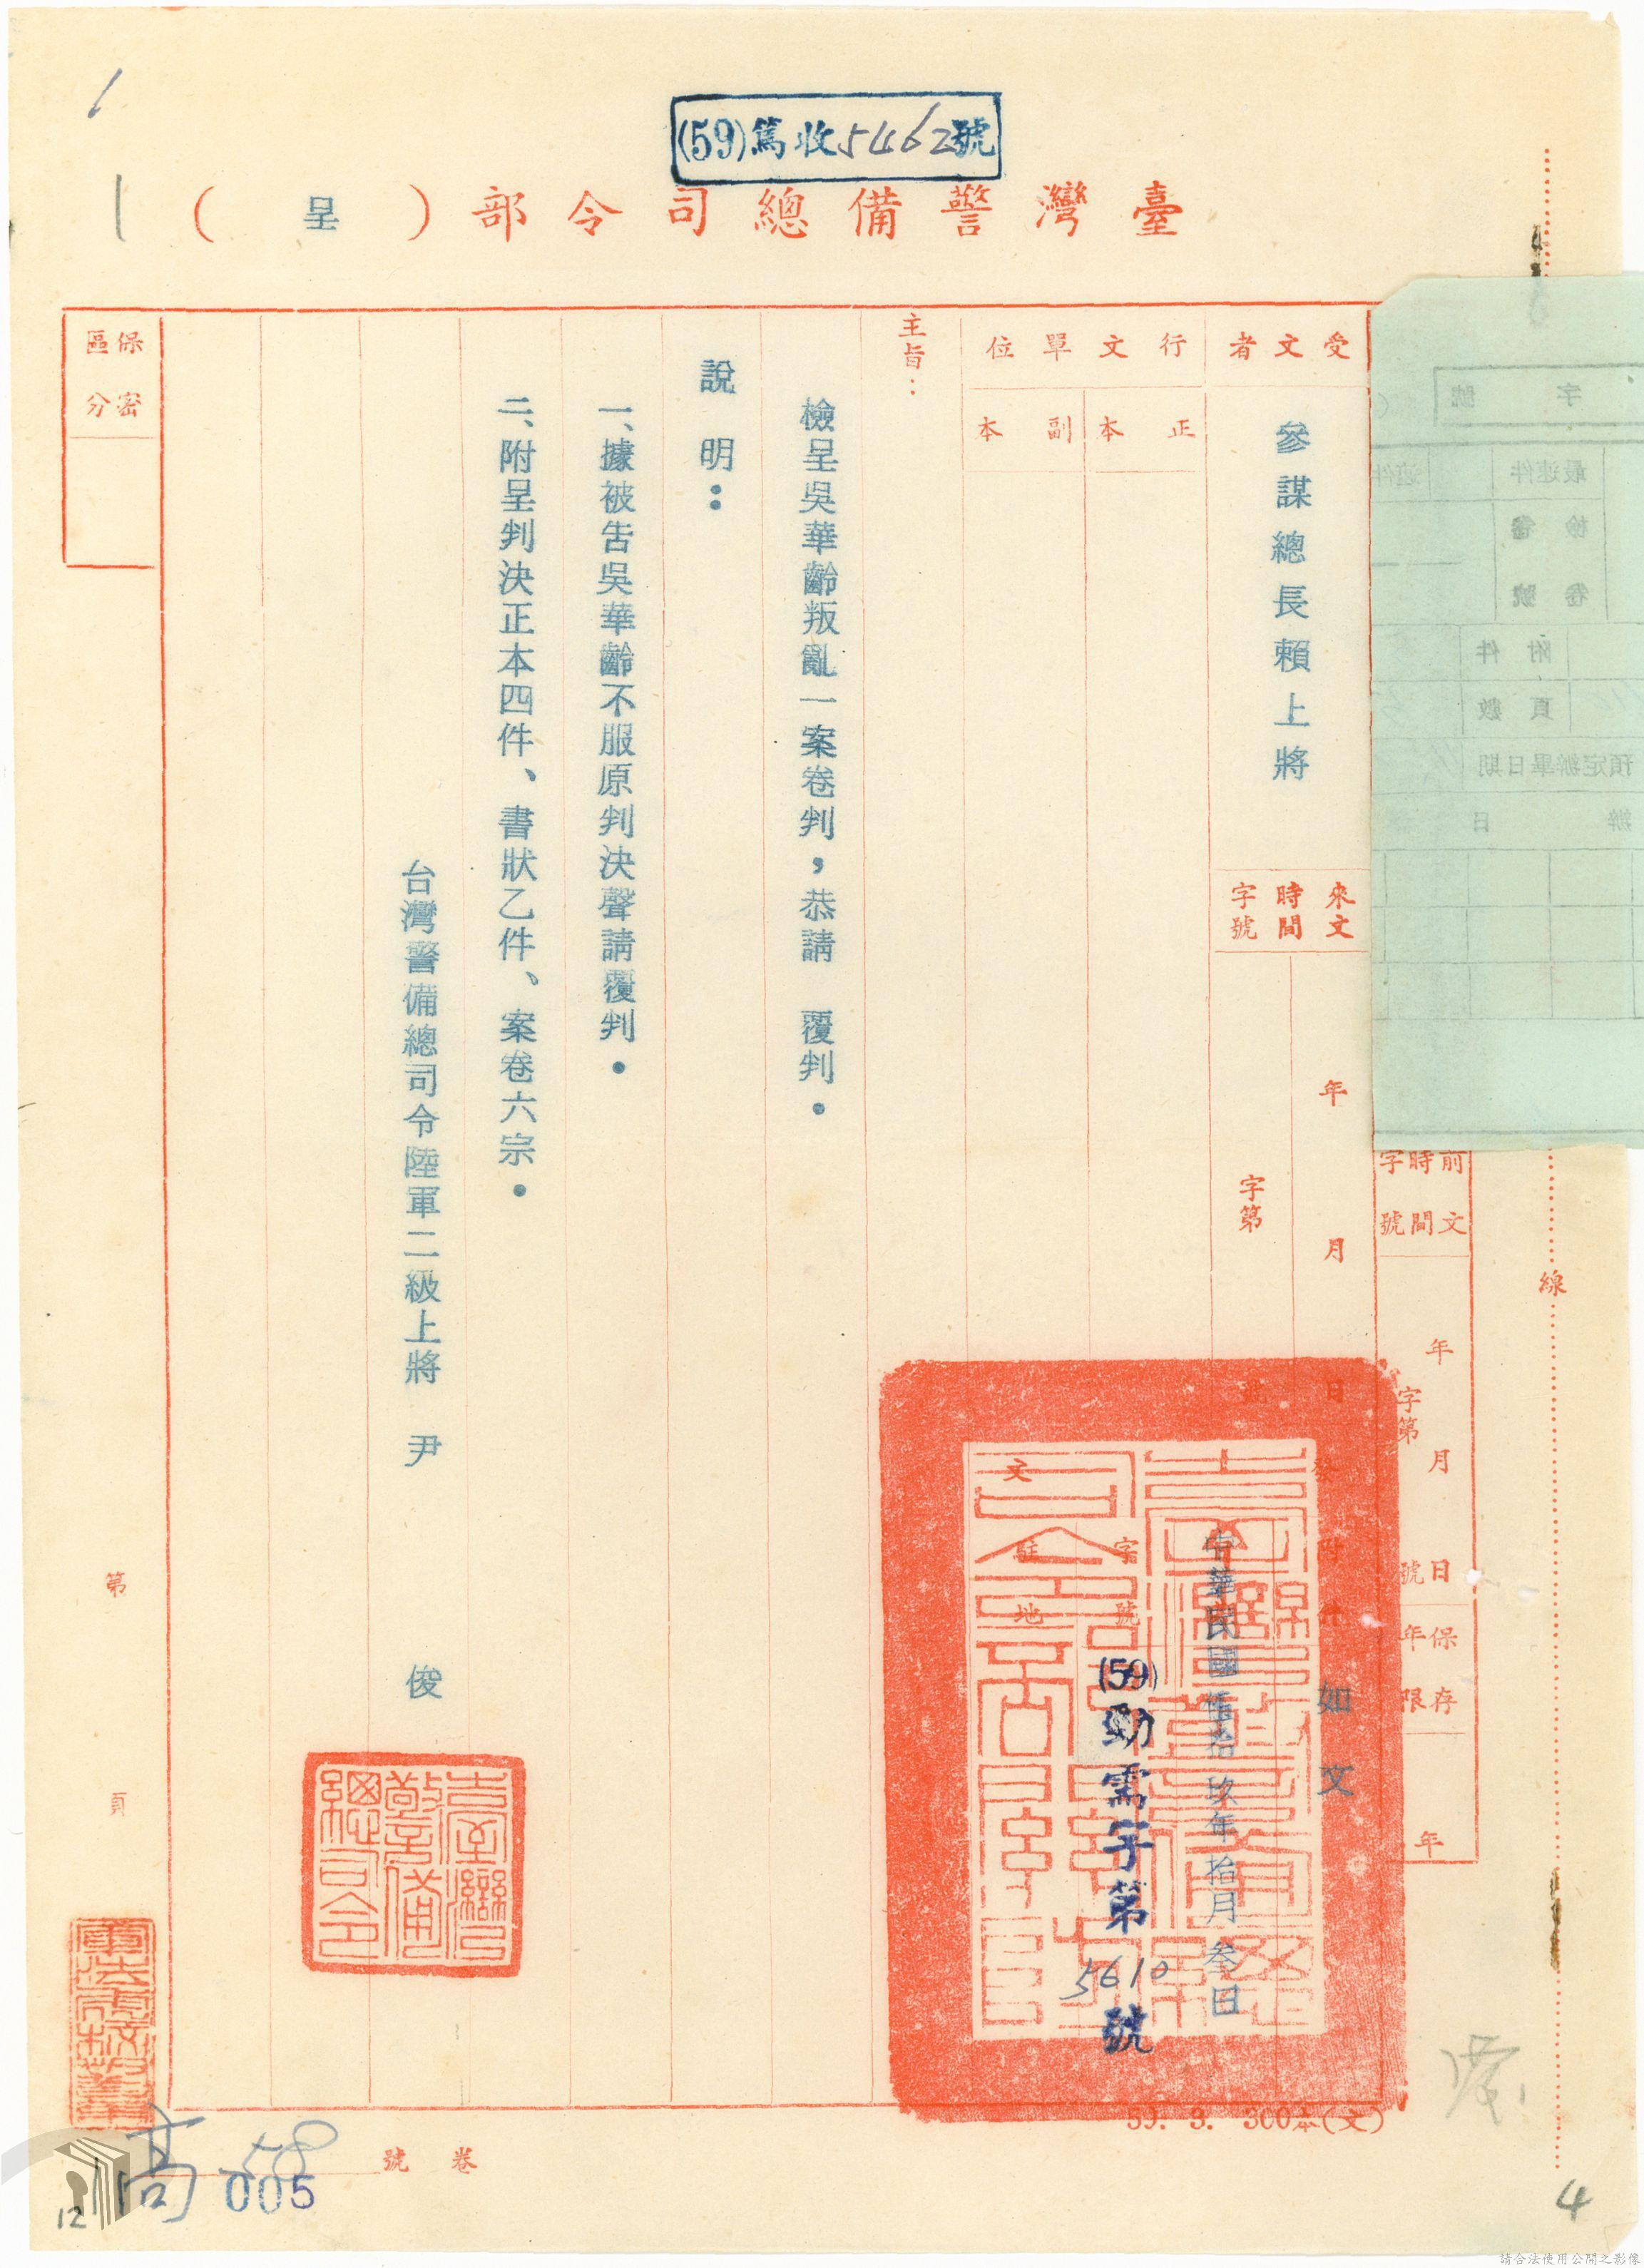 (59)篤收5462號
臺灣警備總司令部(呈)
線
前文
時間
字號
年月日
字第號
保存
年限
年
受文者
參謀總長賴上將
來文
時間
字號
年月日
字第
發
附件
如文
行文單位
正本
副本
中華民國伍拾玖年拾月叁日
字號
(59)勁需字第5610號
文
駐地
主旨：
檢呈吳華齡叛亂一案卷判，恭請 覆判．
說明：
一、據被告吳華齡不服原判決聲請覆判．
二、附呈判決正本四件、書狀乙件、案卷六宗．
台灣警備總司令陸軍二級上將 尹俊
臺灣警備總司令
保密
區分
第頁
59. 3. 300本(文)
卷號
005
12
4
字號
最速件
檢
卷號
附件
頁數
預定辦畢日期
辦日
請合法使用公開之影像